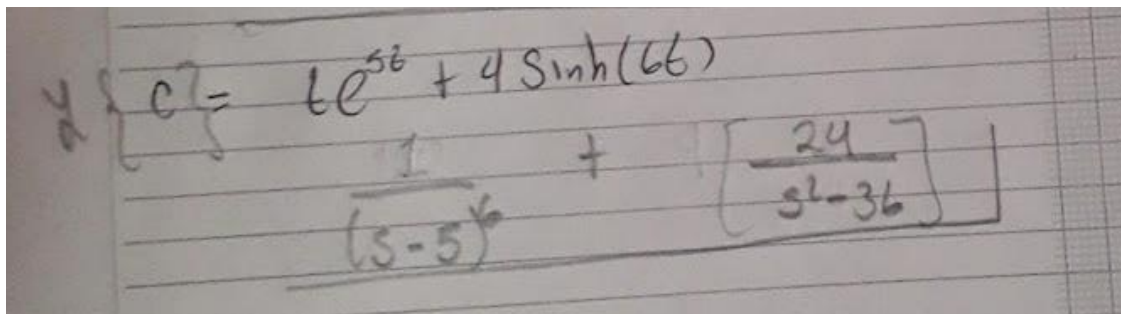 ℒ{c} = te^5t + 4 Sinh(6t)
1/(s-5)^6 + [24/(s²-36)]